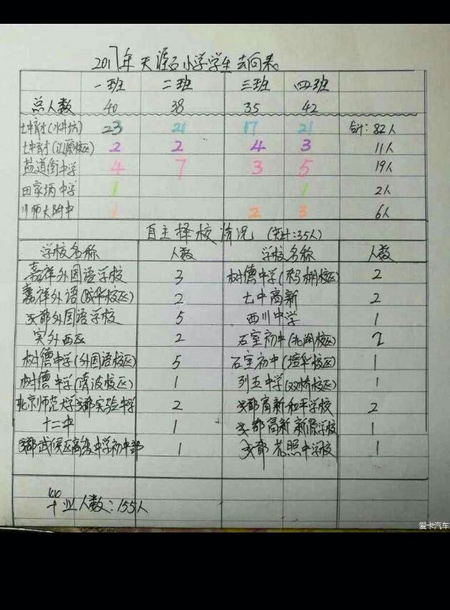 2017年天涯石小学学生去向表
一班 二班 三班 四班
总人数 40 38 35 42
七中育才(水井坊) 23 21 17 21 合计:82人
七中育才(汇源校区) 2 2 4 3 11人
盐道街中学 4 7 3 5 19人
田家炳中学 1 1 2人
川师大附中 1 2 3 6人
自主择校情况(共计:35人)
学校名称 人数 学校名称 人数
嘉祥外国语学校 3 树德中学( 校区) 2
嘉祥外语(成华校区) 2 七中高新 2
成都外国语学校 5 四川中学 1
实外西区 2 石室初中(北湖校区) 2
树德中学(外国语校区) 5 石室初中(培华校区) 1
树德中学(清波校区) 1 列五中学(双桥校区) 1
北京师范大学成都实验中学 2 成都高新和平学校 2
十二中 1 成都高新新源学校 1
成都武侯区高级中学初中部 1 成都 中学校 1
毕业人数:155人
爱卡汽车